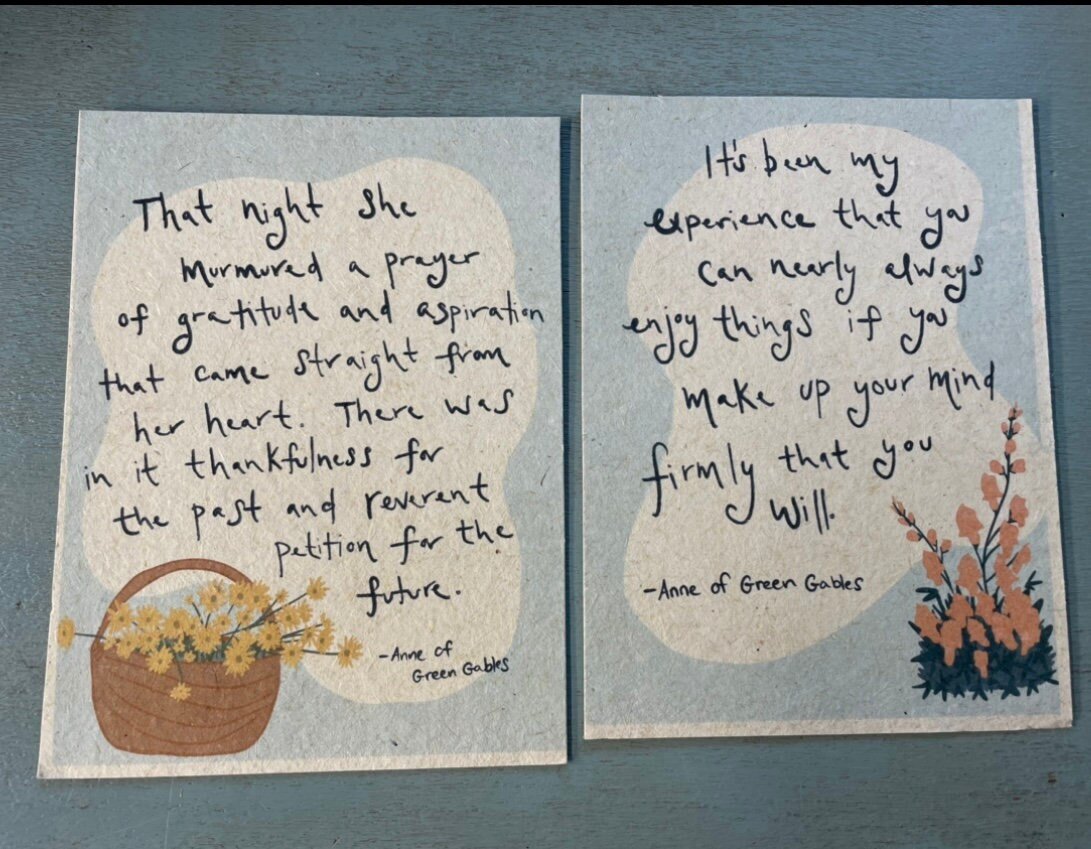 That night she
murmured a prayer
of gratitude and aspiration
that came straight from
her heart. There was
in it thankfulness for
the past and reverent
petition for the
future.
-Anne of
Green Gables
It's been my
experience that you
can nearly always
enjoy things if you
make up your mind
firmly that you
will.
-Anne of Green Gables